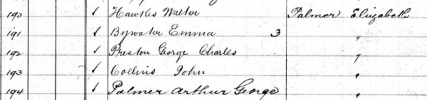 190 1 Hawkes Walter Palmer Elizabeth
191 1 Bywater Emma 3 "
192 1 Preston George Charles "
193 1 Collins John "
194 1 Palmer Arthur George "